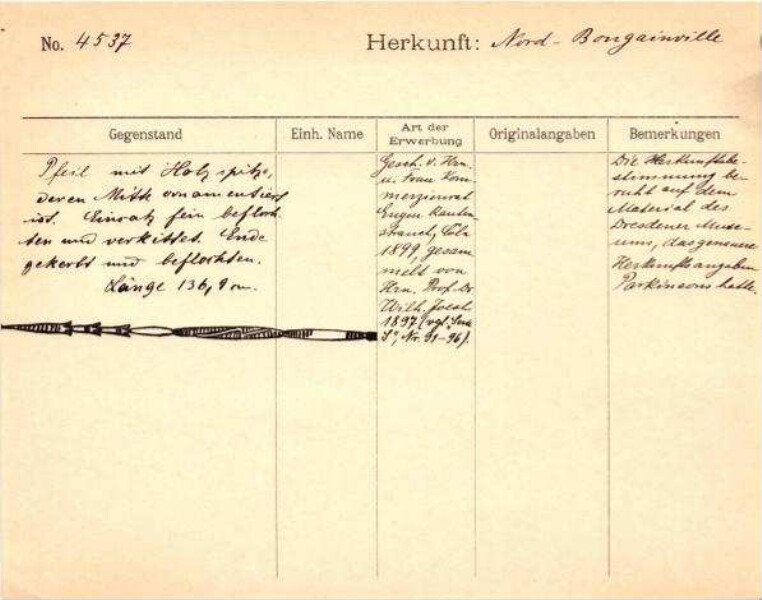 No. 4537
Herkunft: Nord-Bougainville
Gegenstand
Einh. Name
Art der Erwerbung
Originalangaben
Bemerkungen
Pfeil mit Holzspitze,
deren Mitte ornamentiert
ist. Einsatz fein befloch-
ten und verkittet. Ende
gekerbt und beflochten.
Länge 136,9 cm.
Gesch. v. Hrn.
u. Frau Kom-
merzienrat
Eugen Rauten-
strauch, Cöln
1899, gesam
melt von
Hrn. Prof. Dr.
Wilh. Joest
1897 (vgl.
Nr. 91-96).
Die Herkunftsbe-
stimmung be-
ruht auf dem
Material des
Dresdener Muse-
ums, das genauere
Herkunftsangaben
Parkinsons hatte.